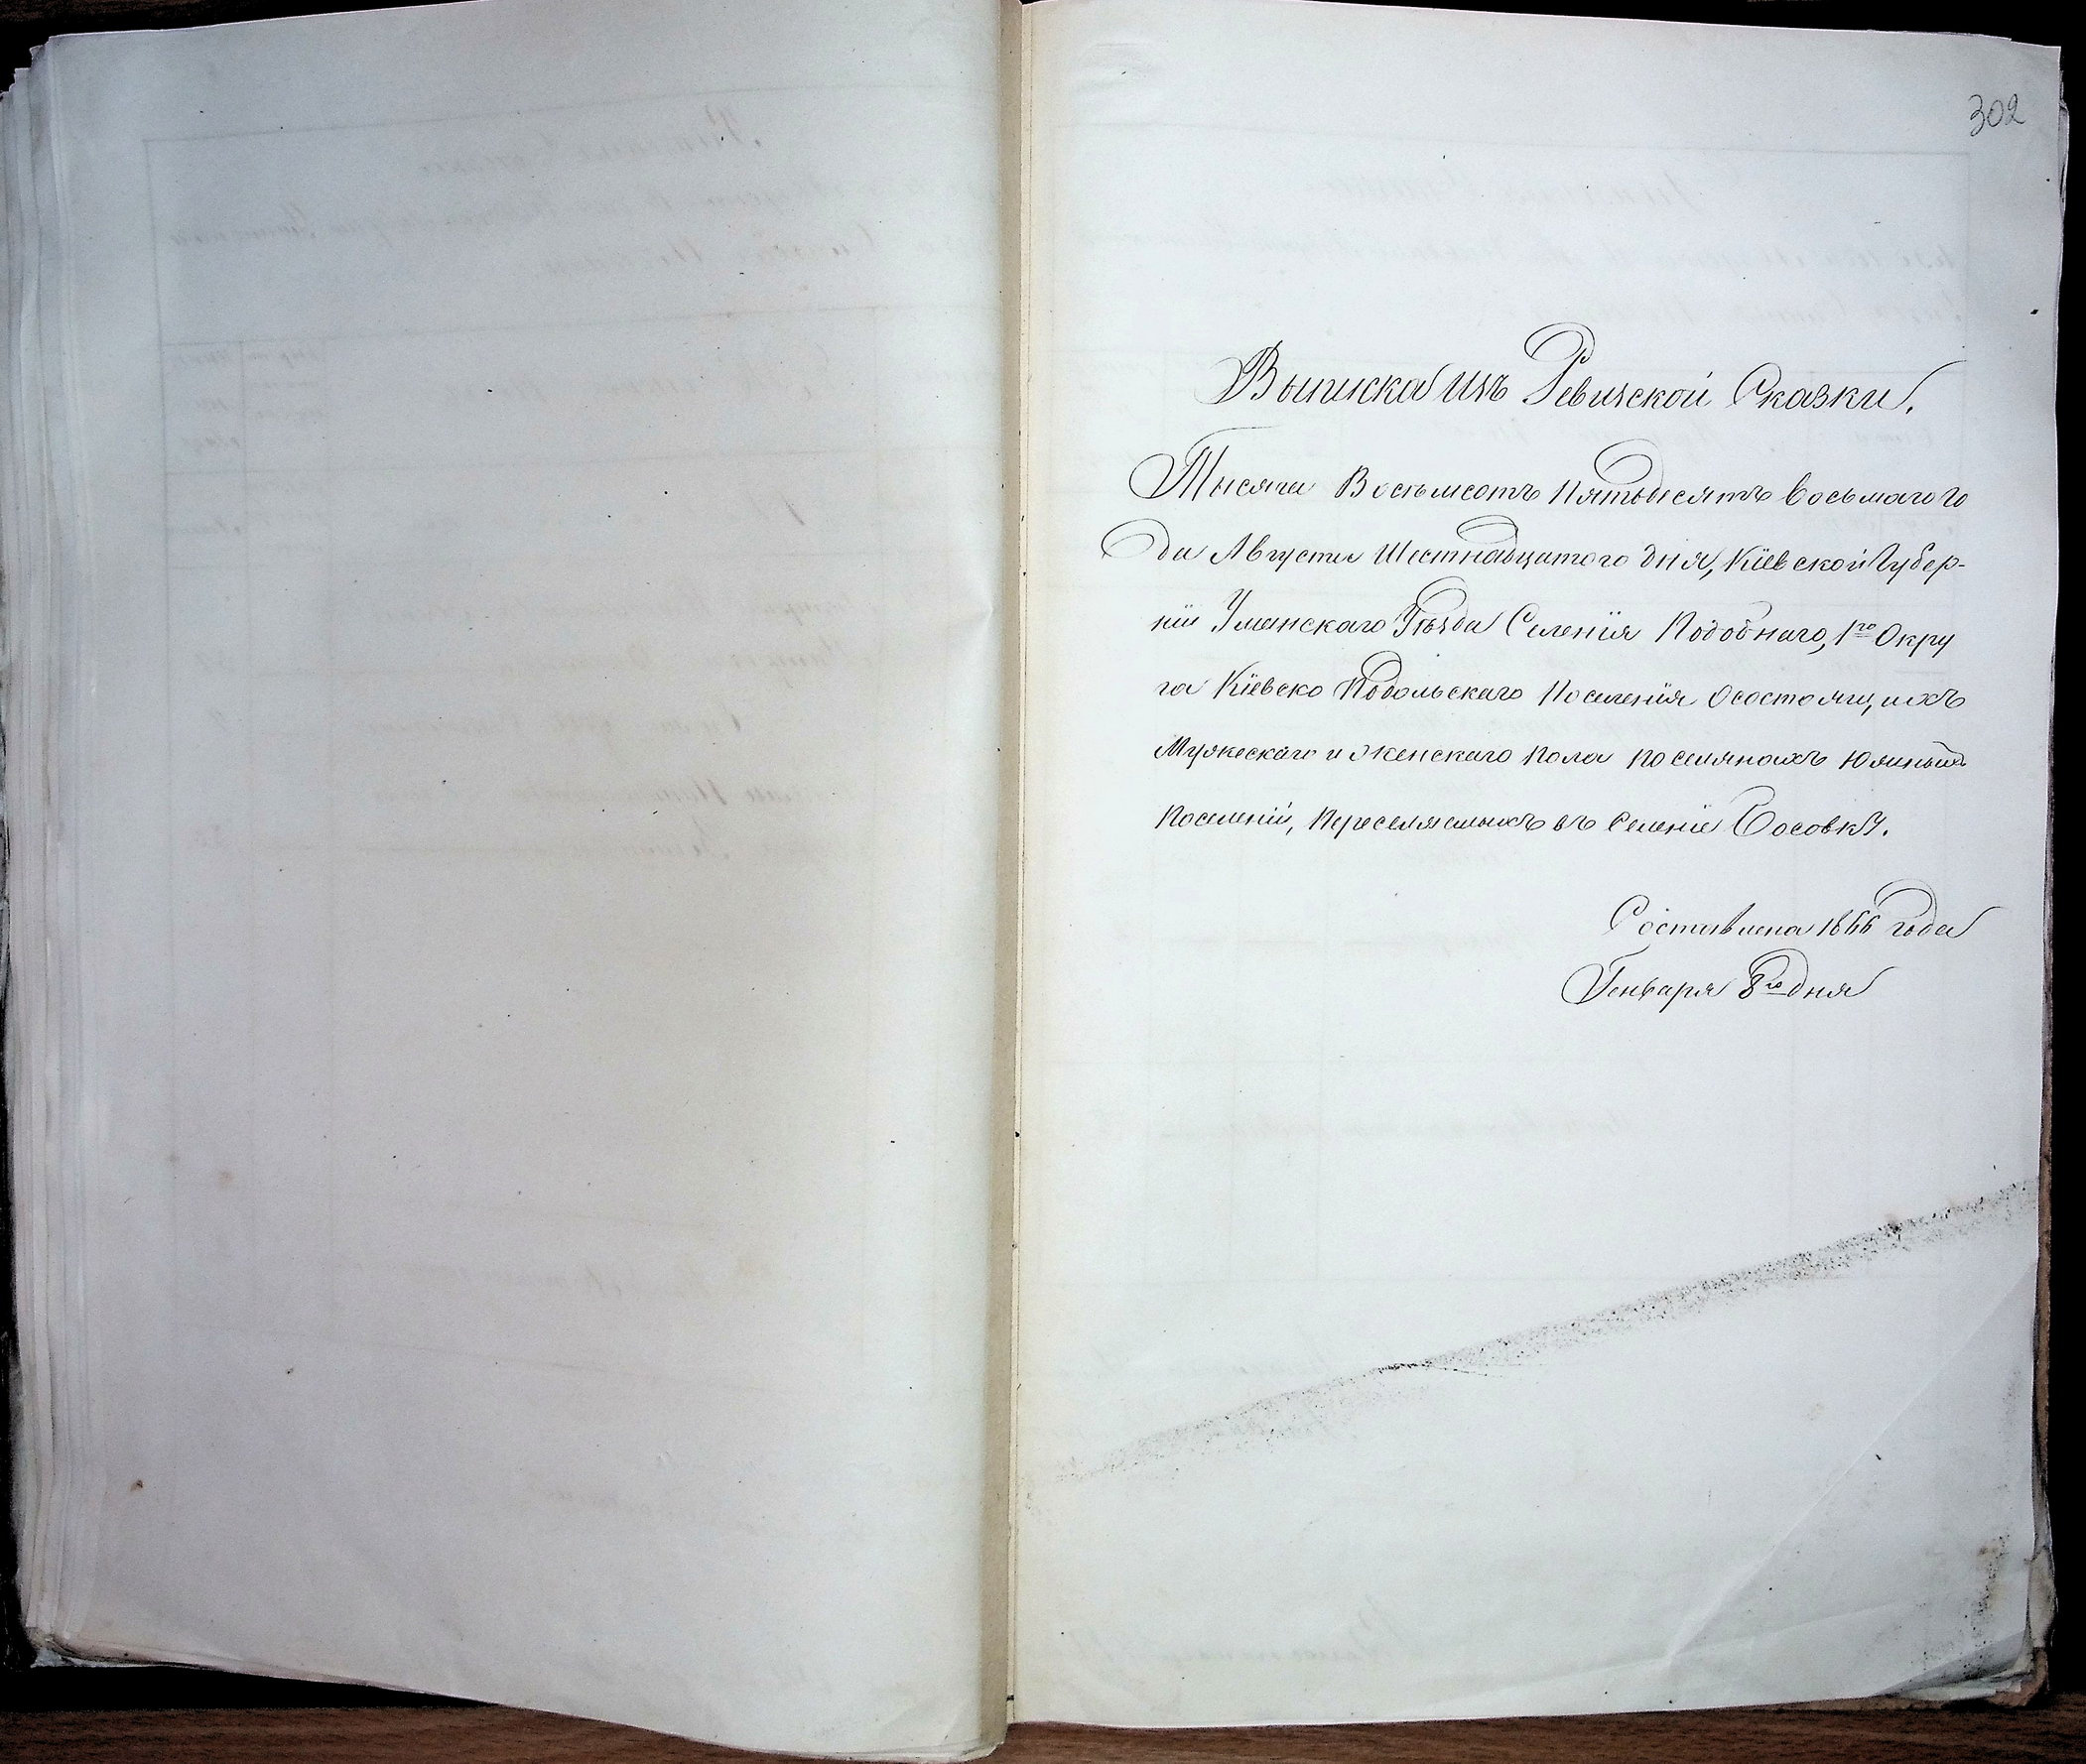 302
Выписка изъ Ревизской Сказки.
Тысяча Восемьсотъ Пятьдесятъ восьмаго го
да Августа Шестнадцатого дня, Кіевской Губер-
ніи Уманскаго Уѣзда Селенія Подобнаго, 1го Окру
га Кіевско Подольскаго Поселенія О состоящихъ
Мужескаго и женскаго пола поселянахъ Южныхъ
Поселеній, Переселяемыхъ въ Селеніе Сосовку.
Составлена 1866 года
Генваря 8го дня